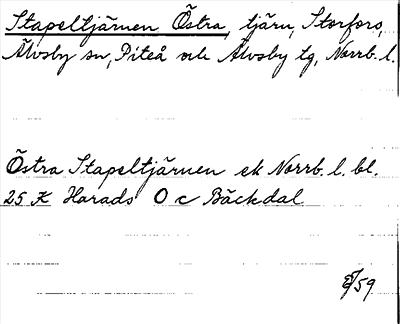 Stapeltjärnen Östra, tjärn, Storfors,
Älvsby sn, Piteå och Älvsby tg, Norrb. l.
Östra Stapeltjärnen ek Norrb. l. bl.
25 K Harads O c Bäckdal
/59